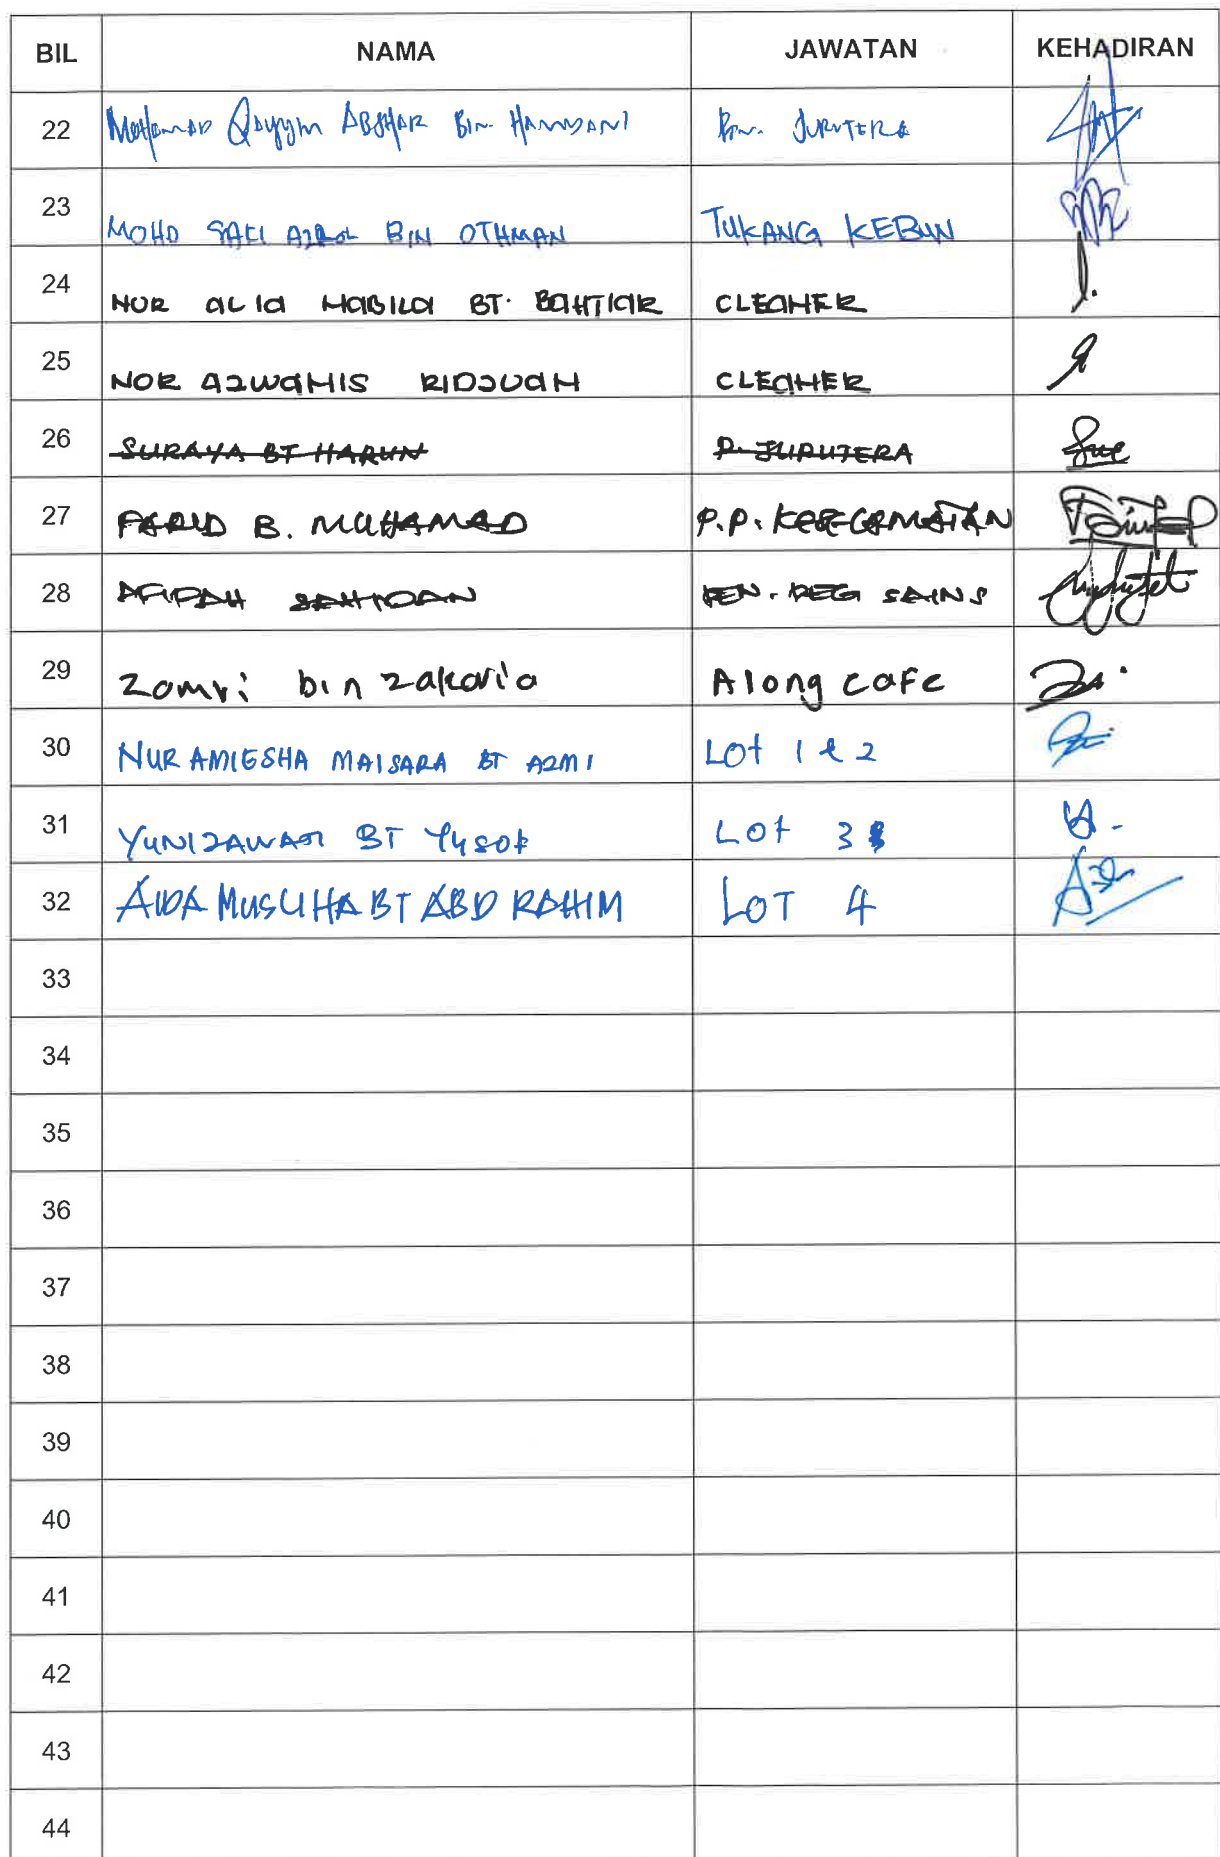 BIL NAMA JAWATAN KEHADIRAN
22 Mohamad Qayyym ABSHAR Bin HAMDANI Pen. JURUTERA
23 MOHD BIN OTHMAN TUKANG KEBUN
24 NUR alia NABILA BT. BAHTIAR CLEANER
25 NOR AZWANIS RIDZUAN CLEANER
26 SURAYA BT HARUN P. JURUTERA Sue
27 FARID B. MUHAMAD P.P. KESELAMATAN
28 AFIPAH SAHIDAN PEN. PEG SAINS
29 Zamri bin zakaria Along cafe
30 NUR AMIESHA MAISARA BT AZMI Lot 1 & 2
31 YUNIZAWATI BT YUSOF LOT 3
32 AIDA MUSLIHA BT ABD RAHIM LOT 4
33
34
35
36
37
38
39
40
41
42
43
44